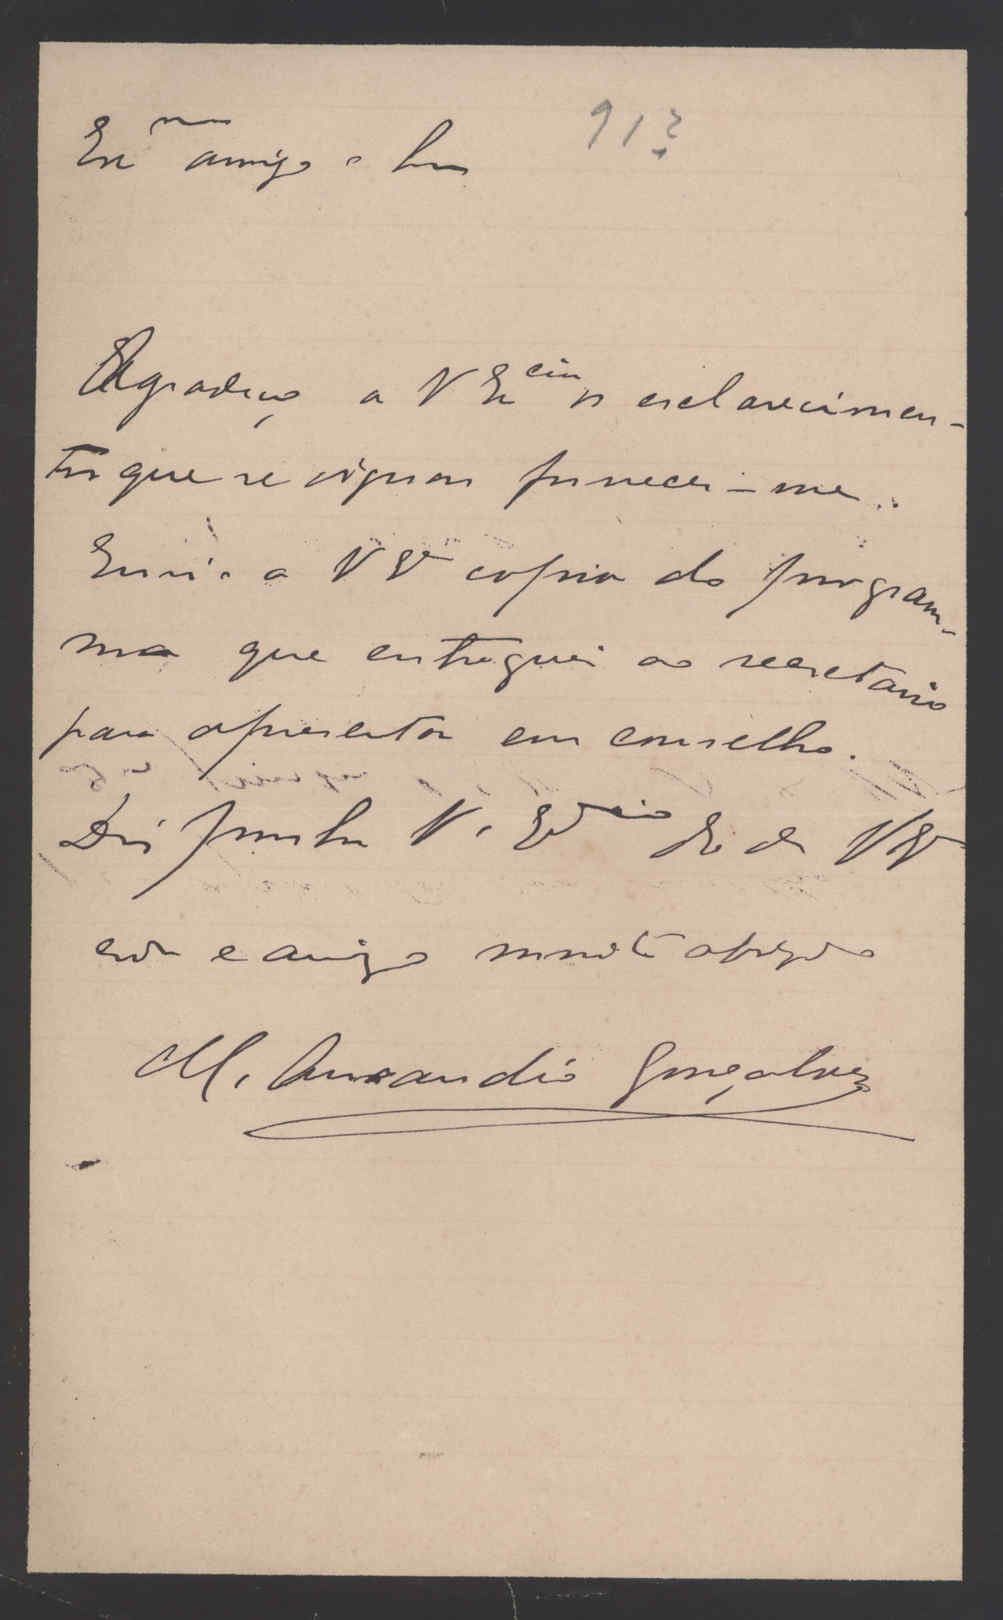 91?
Ex^mo amigo e Snr
Agradeço a V Ex^cia os esclarecimen-
tos que se dignou fornecer-me.
Envio a V Ex copia do program-
ma que entreguei ao secretario
para apresentar em conselho.
Disponha V. Ex de V Ex
e amigo muito
M. Amandio Gonçalves